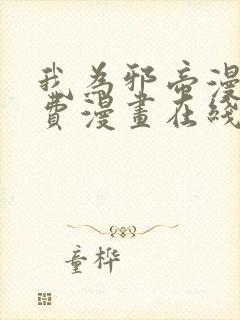 我为邪帝漫
费漫画在线
童桦